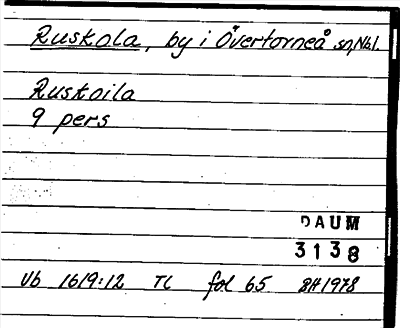 Ruskola, by i Övertorneå sn, Nbl.
Ruskoila
9 pers
DAUM
3138
Vb 1619:12 TL fol 65 BH 1978